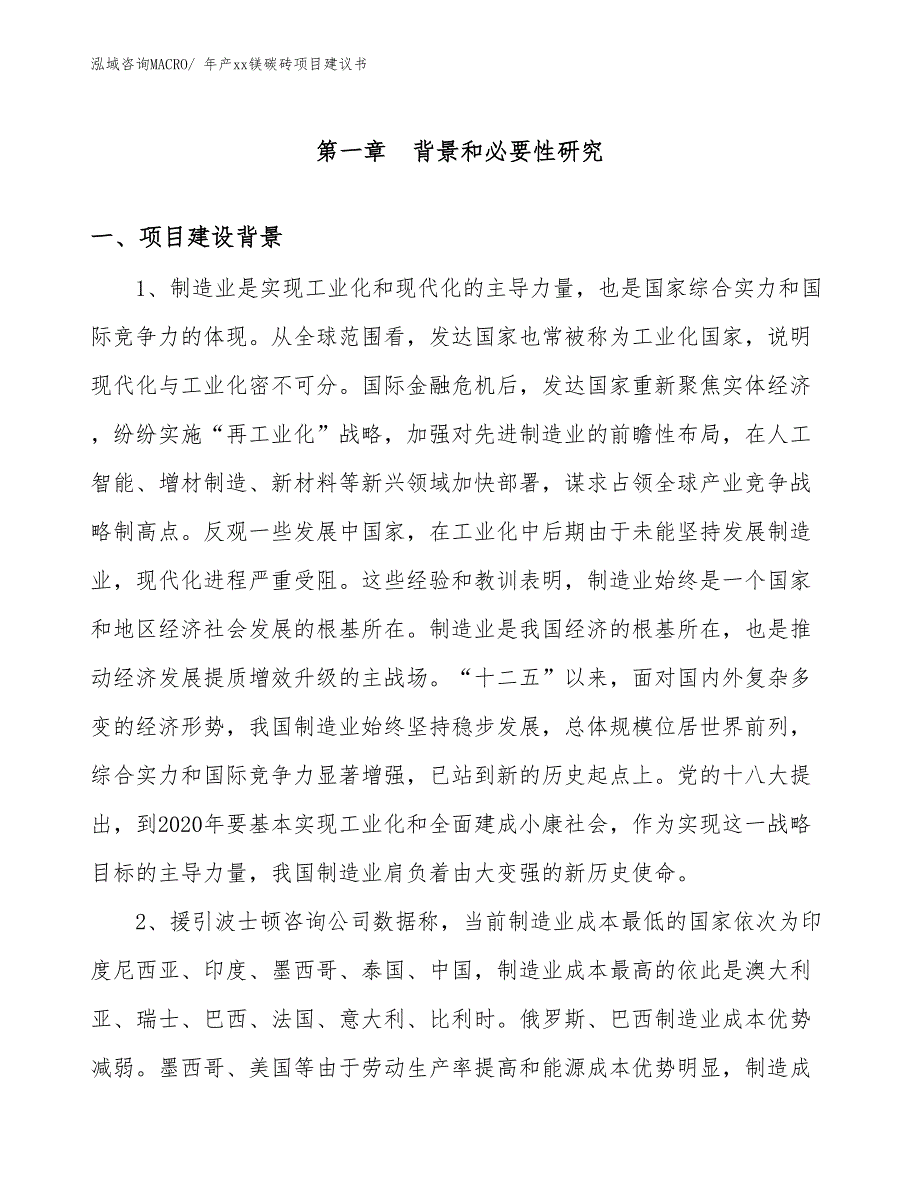 泓域咨询MACRO/ 年产xx镁碳砖项目建议书
第一章　背景和必要性研究
一、项目建设背景
1、制造业是实现工业化和现代化的主导力量，也是国家综合实力和国
际竞争力的体现。从全球范围看，发达国家也常被称为工业化国家，说明
现代化与工业化密不可分。国际金融危机后，发达国家重新聚焦实体经济
，纷纷实施“再工业化”战略，加强对先进制造业的前瞻性布局，在人工
智能、增材制造、新材料等新兴领域加快部署，谋求占领全球产业竞争战
略制高点。反观一些发展中国家，在工业化中后期由于未能坚持发展制造
业，现代化进程严重受阻。这些经验和教训表明，制造业始终是一个国家
和地区经济社会发展的根基所在。制造业是我国经济的根基所在，也是推
动经济发展提质增效升级的主战场。“十二五”以来，面对国内外复杂多
变的经济形势，我国制造业始终坚持稳步发展，总体规模位居世界前列，
综合实力和国际竞争力显著增强，已站到新的历史起点上。党的十八大提
出，到2020年要基本实现工业化和全面建成小康社会，作为实现这一战略
目标的主导力量，我国制造业肩负着由大变强的新历史使命。
2、援引波士顿咨询公司数据称，当前制造业成本最低的国家依次为印
度尼西亚、印度、墨西哥、泰国、中国，制造业成本最高的依此是澳大利
亚、瑞士、巴西、法国、意大利、比利时。俄罗斯、巴西制造业成本优势
减弱。墨西哥、美国等由于劳动生产率提高和能源成本优势明显，制造成